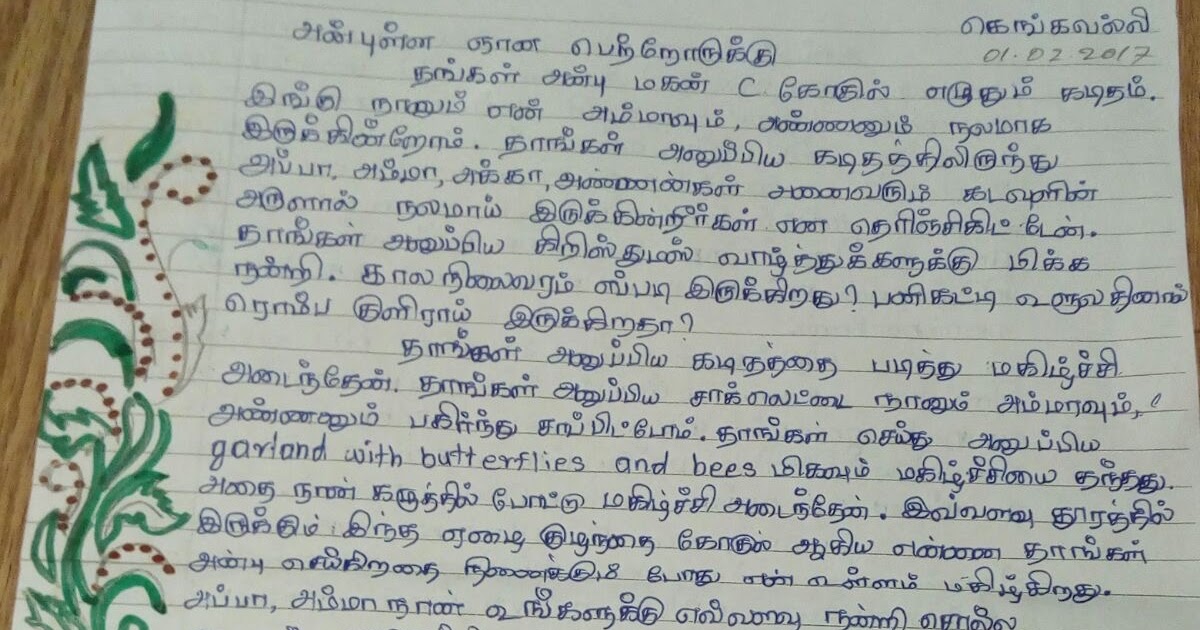 கெங்கவல்லி
01.02.2017
அன்புள்ள ஞான பெற்றோருக்கு
தங்கள் அன்பு மகன் C. கோகுல் எழுதும் கடிதம்.
இங்கு நானும் என் அம்மாவும், அண்ணனும் நலமாக
இருக்கின்றோம். தாங்கள் அனுப்பிய கடிதத்திலிருந்து
அப்பா, அம்மா, அக்கா, அண்ணன்கள் அனைவரும் கடவுளின்
அருளால் நலமாய் இருக்கின்றீர்கள் என தெரிஞ்சிகிட்டேன்.
தாங்கள் அனுப்பிய கிறிஸ்துமஸ் வாழ்த்துக்களுக்கு மிக்க
நன்றி. காலநிலைவரம் எப்படி இருக்கிறது? பனிகட்டி
ரொம்ப குளிராய் இருக்கிறதா?
தாங்கள் அனுப்பிய கடிதத்தை படித்து மகிழ்ச்சி
அடைந்தேன். தாங்கள் அனுப்பிய சாக்லெட்டை நானும் அம்மாவும்,
அண்ணனும் பகிர்ந்து சாப்பிட்டோம். தாங்கள் செய்து அனுப்பிய
garland with butterflies and bees மிகவும் மகிழ்ச்சியை தந்தது.
அதை நான் கழுத்தில் போட்டு மகிழ்ச்சி அடைந்தேன். இவ்வளவு தூரத்தில்
இருக்கும் இந்த ஏழை குழந்தை கோகுல் ஆகிய என்னை தாங்கள்
அன்பு செய்கிறதை நினைக்கும் போது என் உள்ளம் மகிழ்கிறது.
அப்பா, அம்மா நான் உங்களுக்கு எவ்வளவு நன்றி சொல்ல